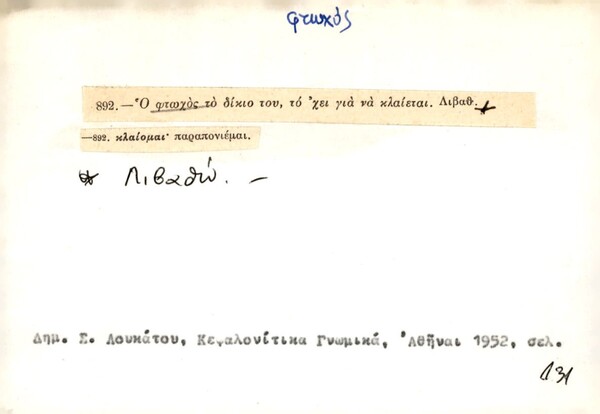 φτωχός
892. — Ὁ φτωχὸς τὸ δίκιο του, τό 'χει γιὰ νὰ κλαίεται. Λιβαθ.
—892. κλαίομαι· παραπονιέμαι.
* Λιβαθώ. —
Δημ. Σ. Λουκάτου, Κεφαλονίτικα Γνωμικά, Ἀθῆναι 1952, σελ.
131